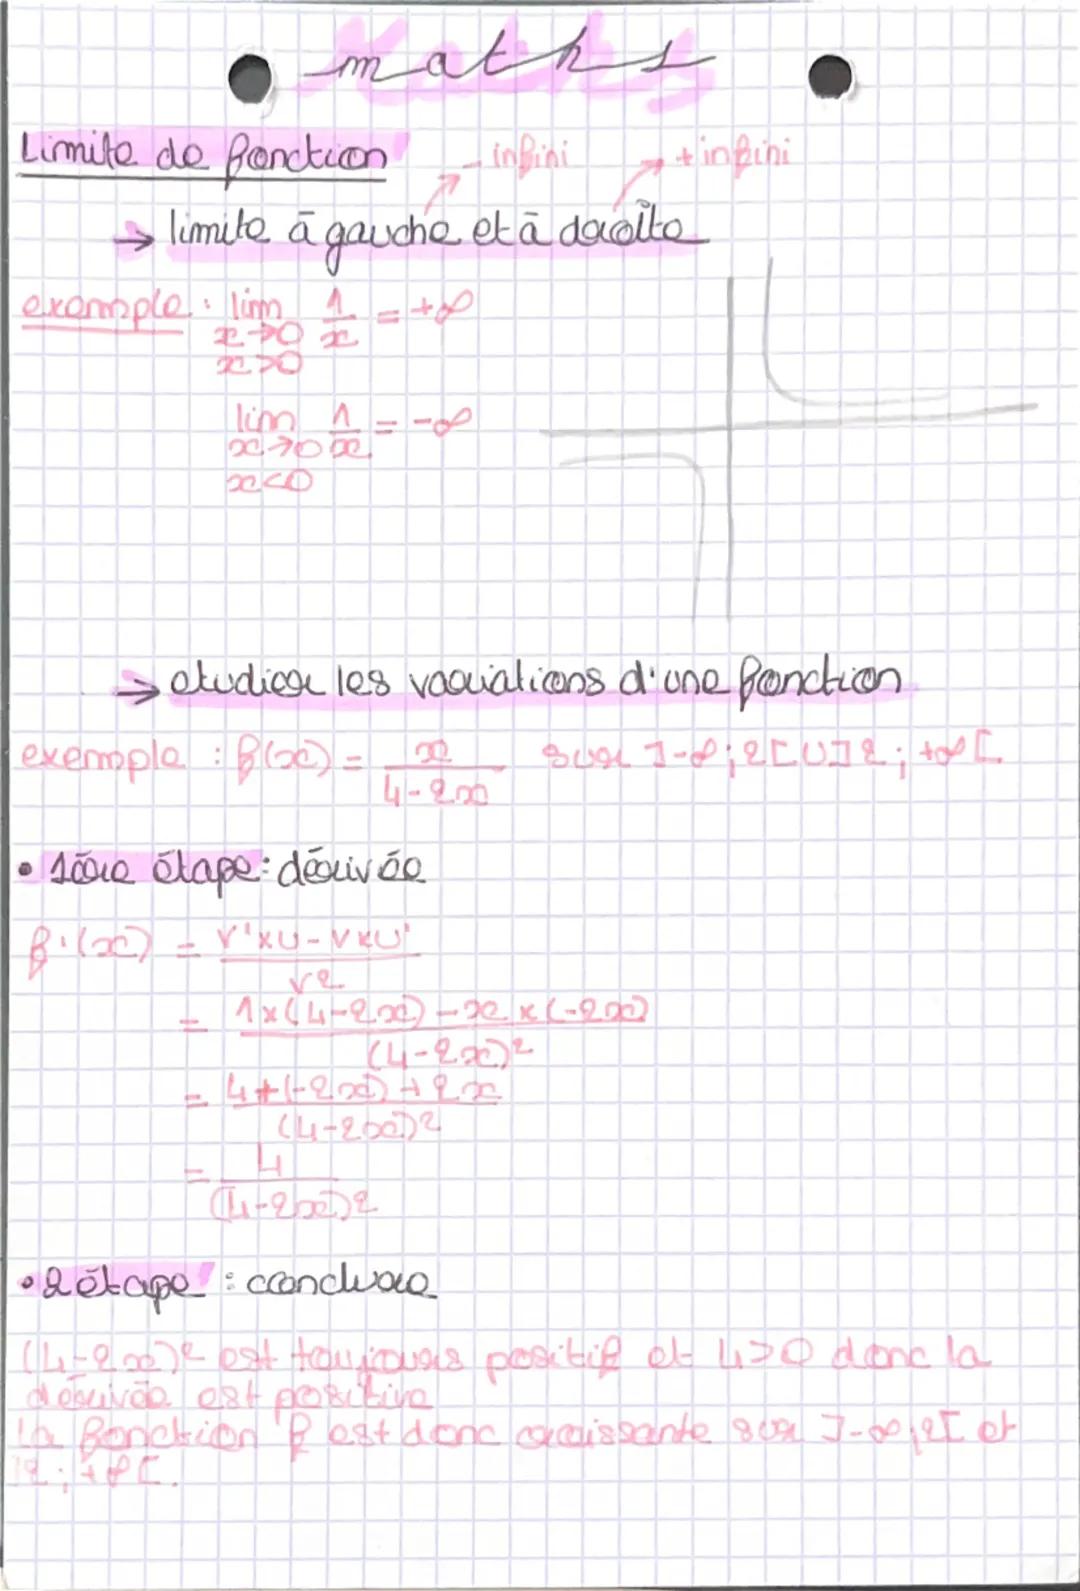 maths
Limite de fonction
- infini + infini
→ limite à gauche et à droite
exemple : lim 1/x = +∞
x→0
x>0
lim 1/x = -∞
x→0
x<0
→ etudier les variations d'une fonction
exemple : f(x) = x/(4-2x) sur ]-∞;2[U]2;+∞[
• 1ère étape : dérivée
f'(x) = (v'xu-vxu')/v2
= (1x(4-2x)-x x(-2x))/(4-2x)²
= (4+(-2x)+2x)/(4-2x)²
= 4/(4-2x)²
• 2 étape : conclure
(4-2x)² est toujours positif et 4>0 donc la
dérivée est positive
la fonction f est donc croissante sur ]-∞;2[ et
]2;+∞[.